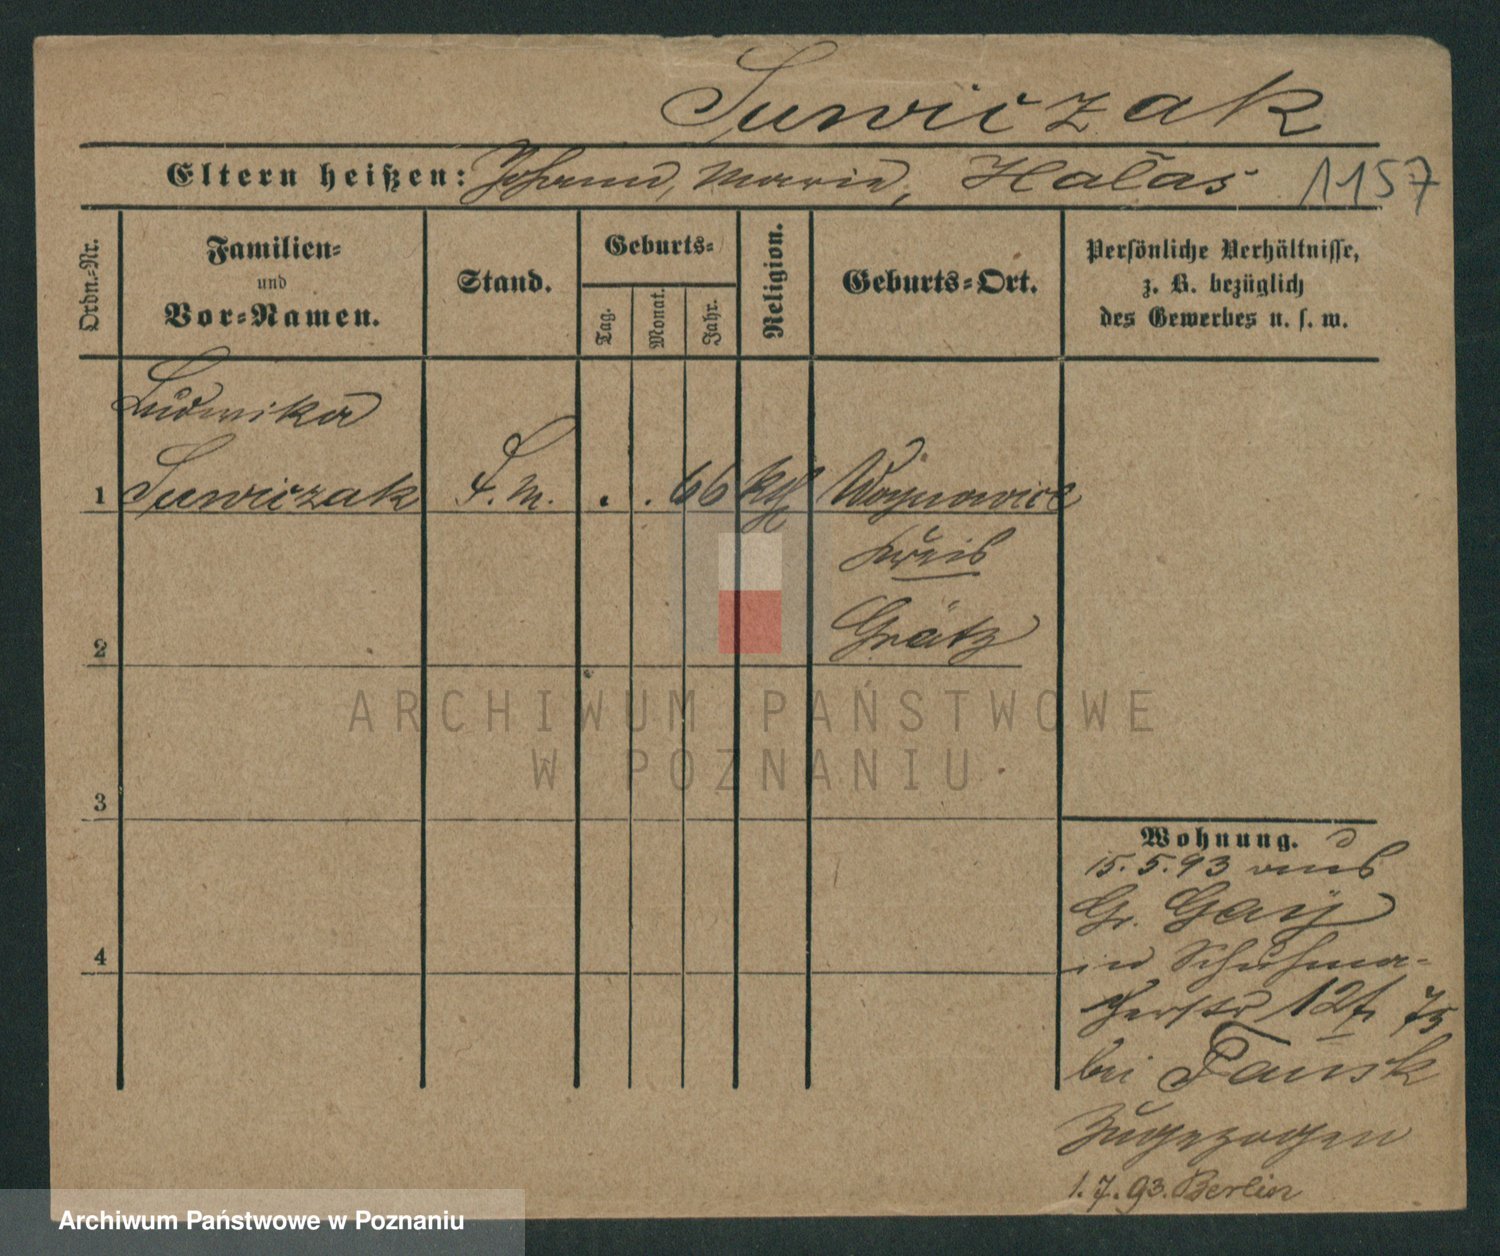 Suwiczak
Eltern heißen: Johann, Marie, Halas 1157
Ordn.-Nr.
Familien-
und
Vor-Namen.
Stand.
Geburts-
Tag.
Monat.
Jahr.
Religion.
Geburts-Ort.
Persönliche Verhältnisse,
z. B. bezüglich
des Gewerbes u. s. w.
Ludwika
1 Suwiczak . . 66 kth Woynowice
Kreis
2 Grätz
3
4
Wohnung.
15.5.93 aus
Gr. Gay
in Schuhma-
cherstr 12
bei
Zugezogen
1.7.93. Berlin
ARCHIWUM PAŃSTWOWE
W POZNANIU
Archiwum Państwowe w Poznaniu